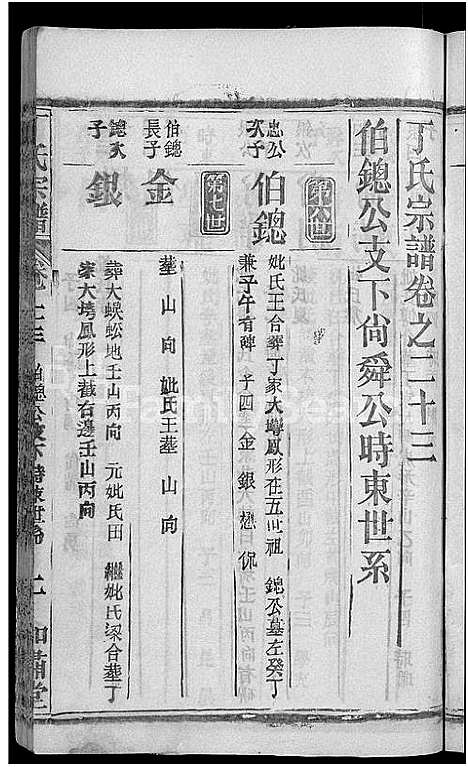 丁氏宗譜卷之二十三
伯鏓公支下尙舜公時東世系
第六世
忠公
次子
伯鏓
妣氏王合葬丁家大塆鳳形在五世祖 鏓公墓左癸丁
兼子午有碑 子四 金 銀 懋 侃
第七世
伯鏓
長子
金
葬 山 向 妣氏王葬 山 向
鏓次
子
銀
葬大蜈蚣地壬山丙向 元妣氏田 繼妣氏梁合葬丁
家大塆鳳形上截右邊壬山丙向
丁氏宗譜